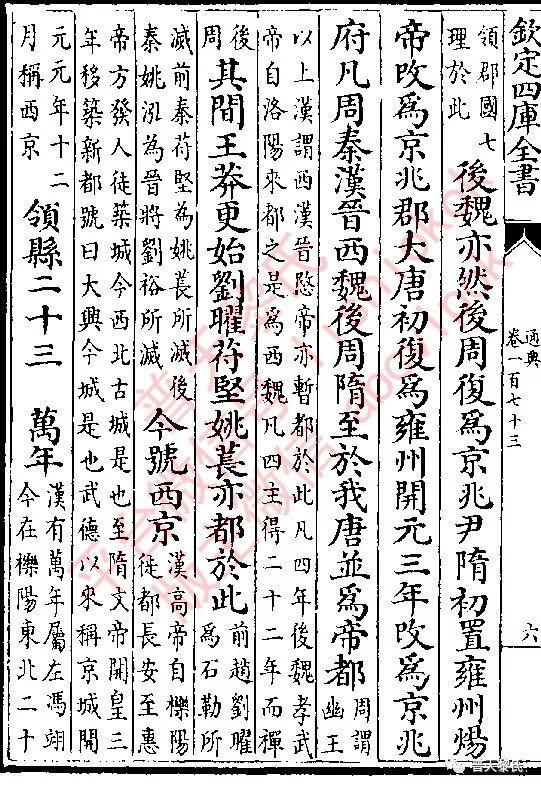 欽定四庫全書
通典
卷一百七十三
六
領郡國七
理於此
後魏亦然後周復爲京兆尹隋初置雍州煬
帝改爲京兆郡大唐初復爲雍州開元三年改爲京兆
府凡周秦漢晉西魏後周隋至於我唐並爲帝都
周謂
幽王
以上漢謂西漢晉愍帝亦暫都於此凡四年後魏孝武
帝自洛陽來都之是爲西魏凡四主得二十二年而禪
後
周
其間王莽更始劉曜苻堅姚萇亦都於此
前趙劉曜
爲石勒所
滅前秦苻堅為姚萇所滅後
秦姚泓為晉將劉裕所滅
今號西京
漢高帝自櫟陽
徙都長安至惠
帝方發人徒築城今西北古城是也至隋文帝開皇三
年移築新都號曰大興今城是也武德以來稱京城開
元元年十二
月稱西京
領縣二十三 萬年
漢有萬年屬左馮翊
今在櫟陽東北二十
普天黎氏